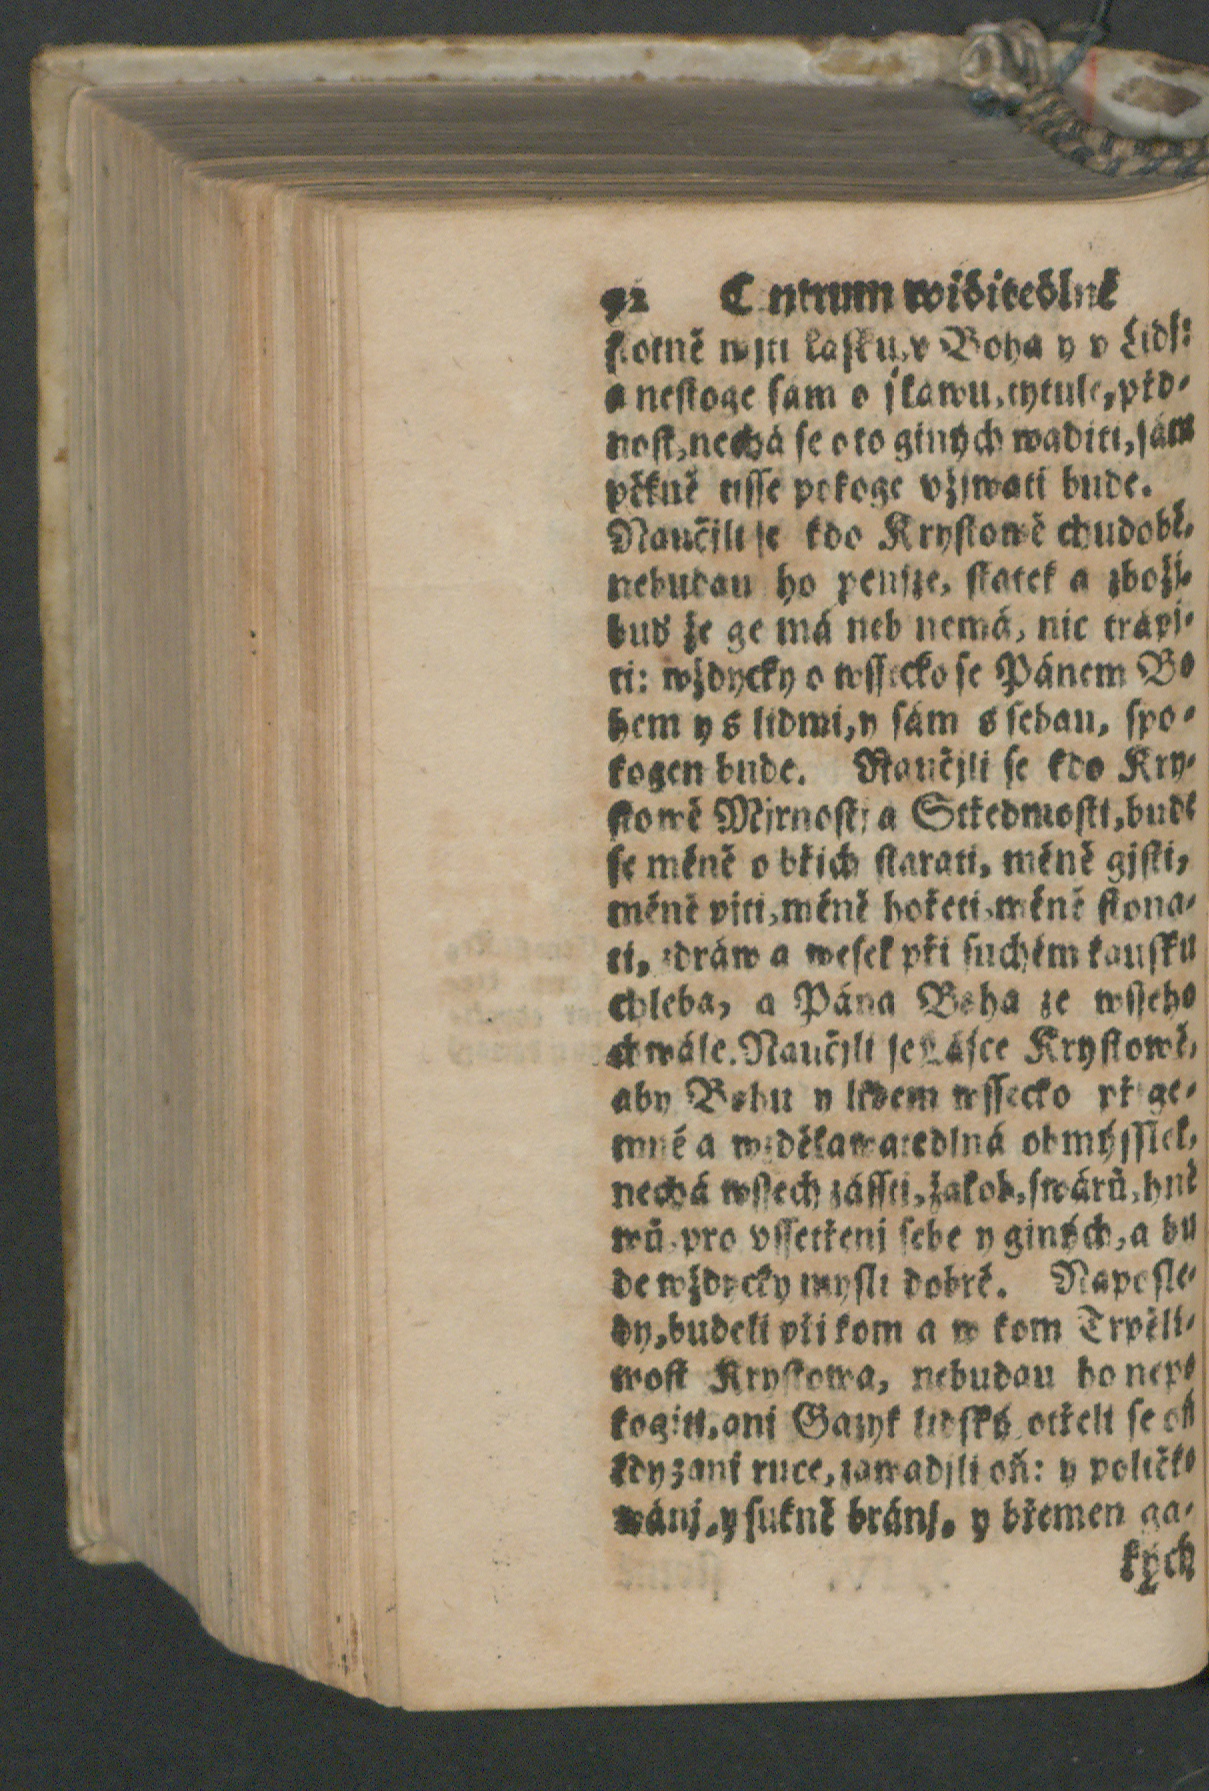 92 Centrum widitedlné
stotně mjti lásku, v Boha y v Lidj:
a nestoge sám o slawu, tytule, před-
nost, nechá se o to giných waditi, sám
pěkně tisse pokoge vžjwati bude.
Naučjli se kdo Krystowě chudobě,
nebudau ho penjze, statek a zbožj,
buď že ge má neb nemá, nic trápi-
ti: wždycky o wssecko se Pánem Bo
hem y s lidmi, y sám s sebau, spo-
kogen bude. Naučjli se kdo Kry-
stowě Mjrnosti a Středmosti, bude
se méně o břich starati, méně gjsti,
méně piti, méně hořeti, méně stona-
ti, zdráw a wesel při suchém kausku
chleba, a Pána Boha ze wsseho
chwále. Naučjli se Lásce Krystowě,
aby Bohu y lidem wssecko přige-
mné a wzdělawatedlná obmýsslel,
nechá wssech zásstí, žalob, swárů, hně
wů, pro vssetřenj sebe y giných, a bu
de wždycky mysli dobré. Naposle-
dy, budeli při kom a w kom Trpěli-
wost Krystowa, nebudau ho nepo
kogiti, ani Gazyk lidský otřeli se oň
kdy, ani ruce, zawadjli oň: y poličko
wánj, y sukně bránj, y břemen ga-
kých